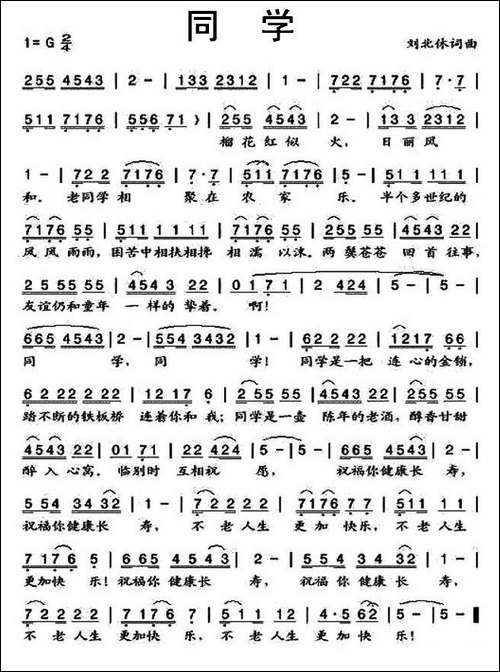 同 学
1=G 2/4 刘北休词曲
255 4543 | 2 - | 133 2312 | 1 - | 722 7176 | 7·7 |
511 7176 | 556 71 ) | 255 4543 | 2 - | 13 3 2312 |
榴花红似 火, 日丽风
1 - | 72 2 7176 | 7·7 | 511 7176 | 5 - | 51 1 111 |
和。老同学相 聚在 农家 乐。半个多世纪的
7176 55 | 222 2222 | 7176 55 | 255 55 | 4543 22 |
风风雨雨,困苦中相扶相搀 相濡 以沫。两鬓苍苍 回首往事,
2 55 55 | 4543 2 | 01 71 | 2 424 | 5 - | 5 - |
友谊仍和童年 一样的 挚着。啊!
665 4543 | 2 - | 554 3432 | 1 - | 62 2 22 | 1217 66 |
同 学, 同 学! 同学是一把 连心的金锁,
62 22 22 | 12 17 6 | 2 55 55 | 4543 22 | 255 55 |
踏不断的铁板桥 连着你和我;同学是一壶 陈年的老酒,醇香甘甜
4543 22 | 01 71 | 22 424 | 5 - | 665 4543 | 2 - |
醉入心窝。临别时 互相祝 愿, 祝福你健康长 寿,
5 54 34 32 | 1 - | 7 2 2 2 2 | 7176 77 | 5 1 1 1 1 |
祝福你健康长 寿, 不老人生 更加快乐,不老人生
7 176 5 | 665 4543 | 2 - | 5 54 3432 | 1 - |
更加快 乐!祝福你健康长 寿, 祝福你健康长 寿,
7 2 2 2 2 | 7176 7 | 511 12 | 4·5 62 | 5 - | 5 - ‖
不老人生 更加快乐,不老人生 更加快 乐!